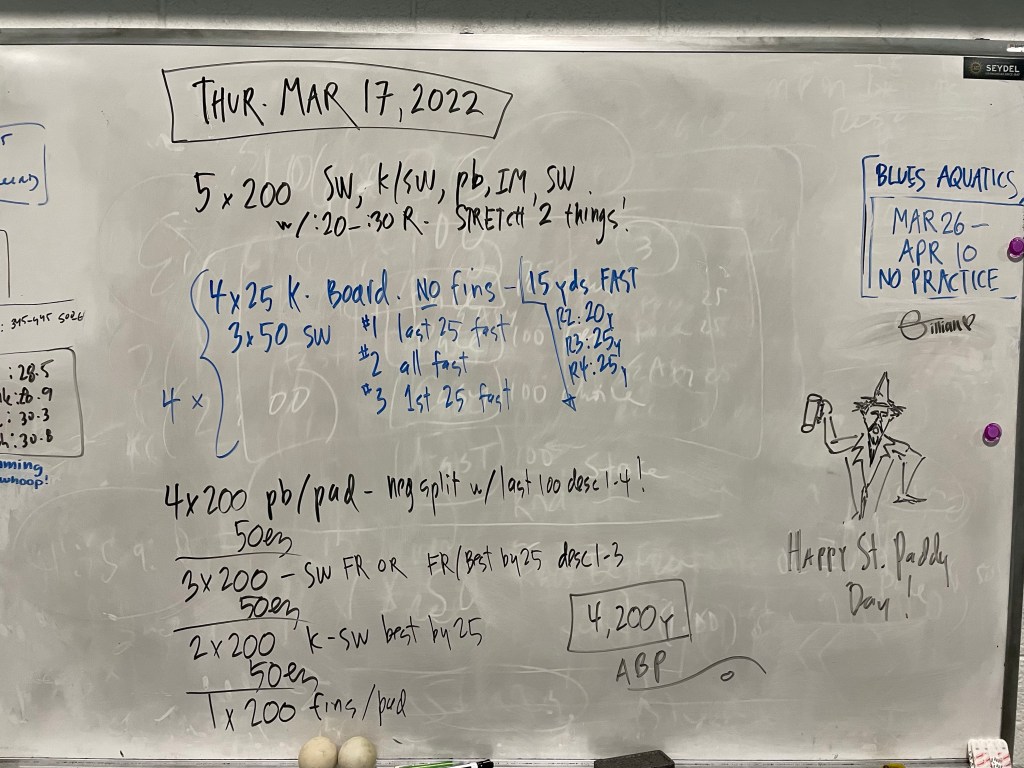 THUR. MAR 17, 2022
5 x 200 SW, K/SW, pb, IM, SW.
w/:20-:30 R. STRETCH '2 things!'
4 x
4 x 25 K. Board. NO fins - 15 yds FAST
R2: 20y
R3: 25y
R4: 25y
3 x 50 SW #1 last 25 fast
#2 all fast
#3 1st 25 fast
4 x 200 pb/pad - neg split w/last 100 desc 1-4!
50 ez
3 x 200 - SW FR OR FR/Best by 25 desc 1-3
50 ez
2 x 200 K-SW best by 25
50 ez
1 x 200 fins/pad
4,200y
ABP
BLUES AQUATICS
MAR 26 -
APR 10
NO PRACTICE
Gillian
HAPPY St. Paddy
Day!
SEYDEL
: 28.5
: 30.3
: 30.8
whoop!